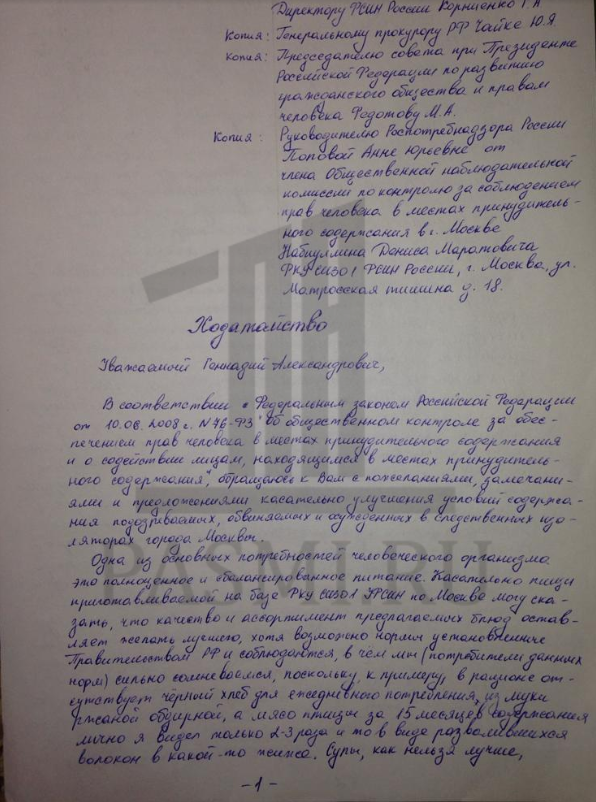 Директору ФСИН России Корниенко Г.А
Копия: Генеральному прокурору РФ Чайке Ю.Я
копия: Председателю совета при Президенте
Российской Федерации по развитию
гражданского общества и правам
человека Федотову М.А.
Копия: Руководителю Роспотребнадзора России
Поповой Анне Юрьевне от
члена Общественной наблюдательной
комиссии по контролю за соблюдением
прав человека в местах принудитель-
ного содержания в г. Москве
Набиуллина Дениса Маратовича
ФКУ СИЗО1 ФСИН России, г. Москва, ул.
Матросская тишина д. 18.
Ходатайство
Уважаемый Геннадий Александрович,
В соответствии с Федеральным законом Российской Федерации
от 10.06.2008 г. N 76-ФЗ "об общественном контроле за обес-
печением прав человека в местах принудительного содержания
и о содействии лицам, находящимся в местах принудитель-
ного содержания", обращаюсь к Вам с пожеланиями, замечани-
ями и предложениями касательно улучшения условий содержа-
ния подозреваемых, обвиняемых и осужденных в следственных изо-
ляторах города Москвы.
Одна из основных потребностей человеческого организма
это полноценное и сбалансированное питание. Касательно пищи
приготавливаемой на базе ФКУ СИЗО1 УФСИН по Москве могу ска-
зать, что качество и ассортимент предлагаемых блюд остав-
ляет желать лучшего, хотя возможно нормы установленные
Правительством РФ и соблюдаются, в чем мы (потребители данных
норм) сильно сомневаемся, поскольку, к примеру, в рационе от-
сутствует чёрный хлеб для ежедневного потребления, из муки
ржаной обдирной, а мясо птицы за 15 месяцев содержания
лично я видел только 2-3 раза и то в виде развалившихся
волокон в какой-то жижа. Супы, как нельзя лучше,
-1-
PASMI.RU